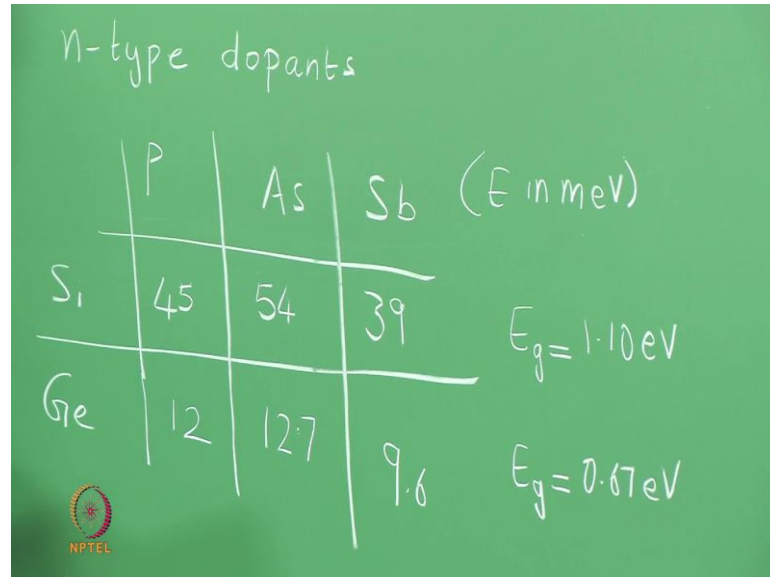 n-type dopants
P As Sb (E in meV)
Si 45 54 39 Eg = 1.10 eV
Ge 12 12.7 9.6 Eg = 0.67 eV
NPTEL